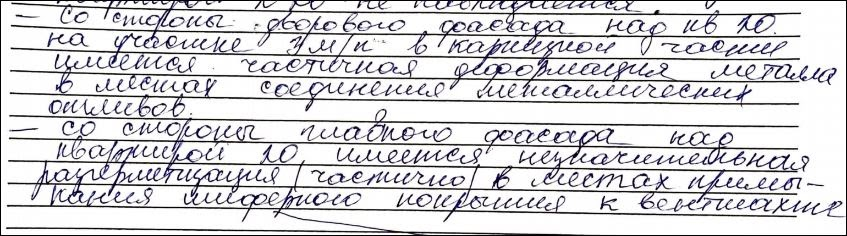 квартирой 20 не наблюдается.
– со стороны дворового фасада над кв 20.
на участке 3 м/п в карнизной части
имеется частичная деформация металла
в местах соединения металлических
отливов.
– со стороны главного фасада над
квартирой 20 имеется незначительная
разгерметизация (частично) в местах примы-
кания шиферного покрытия к вентшахте